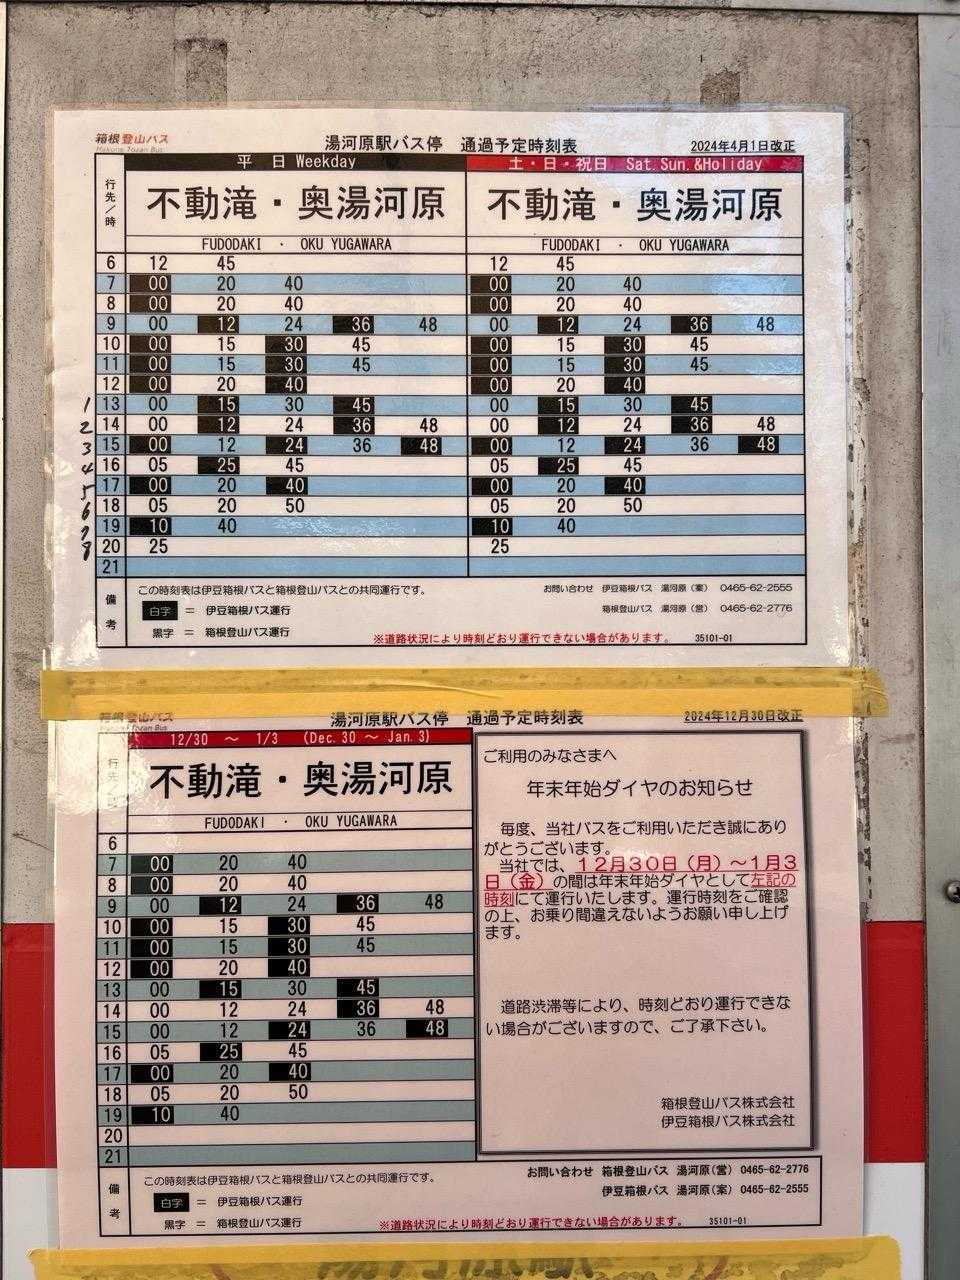 箱根登山バス
Hakone Tozan Bus
湯河原駅バス停 通過予定時刻表
2024年4月1日改正
行先/時
平 日 Weekday
土・日・祝日 Sat.Sun.&Holiday
不動滝・奥湯河原 不動滝・奥湯河原
FUDODAKI ・ OKU YUGAWARA FUDODAKI ・ OKU YUGAWARA
6 12 45 12 45
7 00 20 40 00 20 40
8 00 20 40 00 20 40
9 00 12 24 36 48 00 12 24 36 48
10 00 15 30 45 00 15 30 45
11 00 15 30 45 00 15 30 45
12 00 20 40 00 20 40
1 13 00 15 30 45 00 15 30 45
2 14 00 12 24 36 48 00 12 24 36 48
3 15 00 12 24 36 48 00 12 24 36 48
4 16 05 25 45 05 25 45
5 17 00 20 40 00 20 40
6 18 05 20 50 05 20 50
7 19 10 40 10 40
8 20 25 25
21
備考
この時刻表は伊豆箱根バスと箱根登山バスとの共同運行です。
白字 = 伊豆箱根バス運行
黒字 = 箱根登山バス運行
お問い合わせ 伊豆箱根バス 湯河原(案) 0465-62-2555
箱根登山バス 湯河原(営) 0465-62-2776
※道路状況により時刻どおり運行できない場合があります。 35101-01
箱根登山バス
Hakone Tozan Bus
湯河原駅バス停 通過予定時刻表
2024年12月30日改正
行先/時
12/30 ～ 1/3 (Dec.30 ～ Jan.3)
不動滝・奥湯河原
FUDODAKI ・ OKU YUGAWARA
6
7 00 20 40
8 00 20 40
9 00 12 24 36 48
10 00 15 30 45
11 00 15 30 45
12 00 20 40
13 00 15 30 45
14 00 12 24 36 48
15 00 12 24 36 48
16 05 25 45
17 00 20 40
18 05 20 50
19 10 40
20
21
ご利用のみなさまへ
年末年始ダイヤのお知らせ
毎度、当社バスをご利用いただき誠にあり
がとうございます。
当社では、12月30日(月)～1月3
日(金)の間は年末年始ダイヤとして左記の
時刻にて運行いたします。運行時刻をご確認
の上、お乗り間違えないようお願い申し上げ
ます。
道路渋滞等により、時刻どおり運行できな
い場合がございますので、ご了承下さい。
箱根登山バス株式会社
伊豆箱根バス株式会社
備考
この時刻表は伊豆箱根バスと箱根登山バスとの共同運行です。
白字 = 伊豆箱根バス運行
黒字 = 箱根登山バス運行
お問い合わせ 箱根登山バス 湯河原(営) 0465-62-2776
伊豆箱根バス 湯河原(案) 0465-62-2555
※道路状況により時刻どおり運行できない場合があります。 35101-01